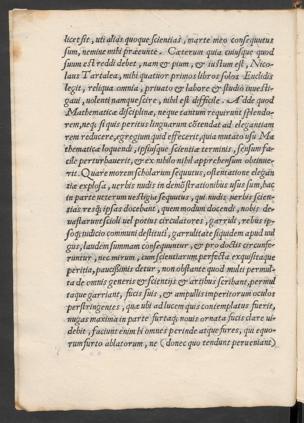 licet sit, uti alias quoque scientias, marte meo consequutus
sum, nemine mihi præeunte. Cæterum quia cuiusque quod
suum est reddi debet, nam & pium, & iustum est, Nico-
laus Tartalea, mihi quatuor primos libros solos Euclidis
legit, reliqua omnia, privato & labore & studio inuesti-
gaui, uolenti namque scire, nihil est difficile. Adde quod
Mathematicæ disciplinæ, neque tantum requirunt splendo-
rem, neq; si quis peritus linguarum cōtendat ad elegantiam
rem reducere, egregium quid effecerit, quia mutato usu Ma
thematicæ loquendi, ipsiusque scientiæ terminis, sensum fa-
cile perturbauerit, & ex nihilo nihil apprehensum obtinue-
rit. Quare morem scholarum sequutus, ostentatione elegan
tiæ explosa, uerbis nudis in demōstrationibus usus sum, hac
in parte ueterum uestigia sequutus, qui nudis uerbis scien-
tias resq́; ipsas docebant, quem modum docendi, nobis de-
uastarunt scioli uel potius circulatores, garruli, rebus ip-
soq́; iudicio communi destituti, garrulitate siquidem apud uul
gus, laudem summam consequuntur, & pro doctis circunfe-
runtur, nec mirum, cum scientiarum perfecta exquisitaque
peritia, paucissimis detur, non obstante quod multi permul-
ta de omnis generis & scientijs & artibus scribant, permul
taque garriant, fucis suis, & ampullis imperitorum oculos
perstringentes, quæ ubi ad lucem quis contemplatus fuerit,
nugas maxima in parte furtaq́; nouis ornata fucis clare ui-
debit, faciunt enim hi omnes perinde atque fures, qui equo-
rum furto ablatorum, ne (donec quo tendunt perueniant)